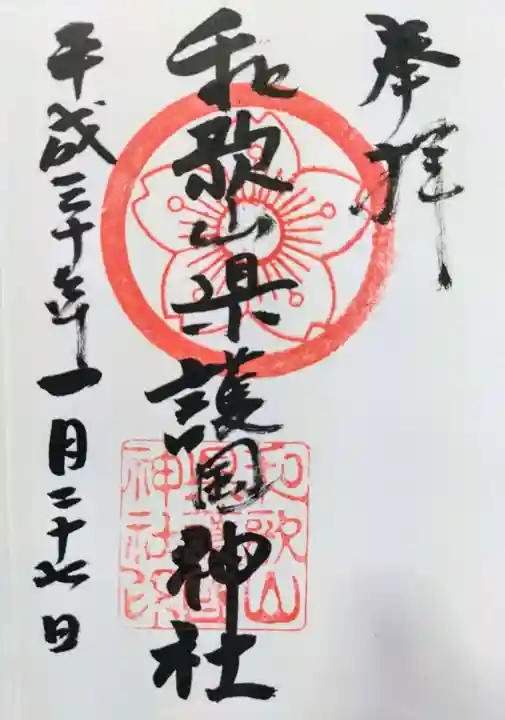 奉拝
和歌山県護国神社
平成三十年一月二十七日
和歌山
神社印